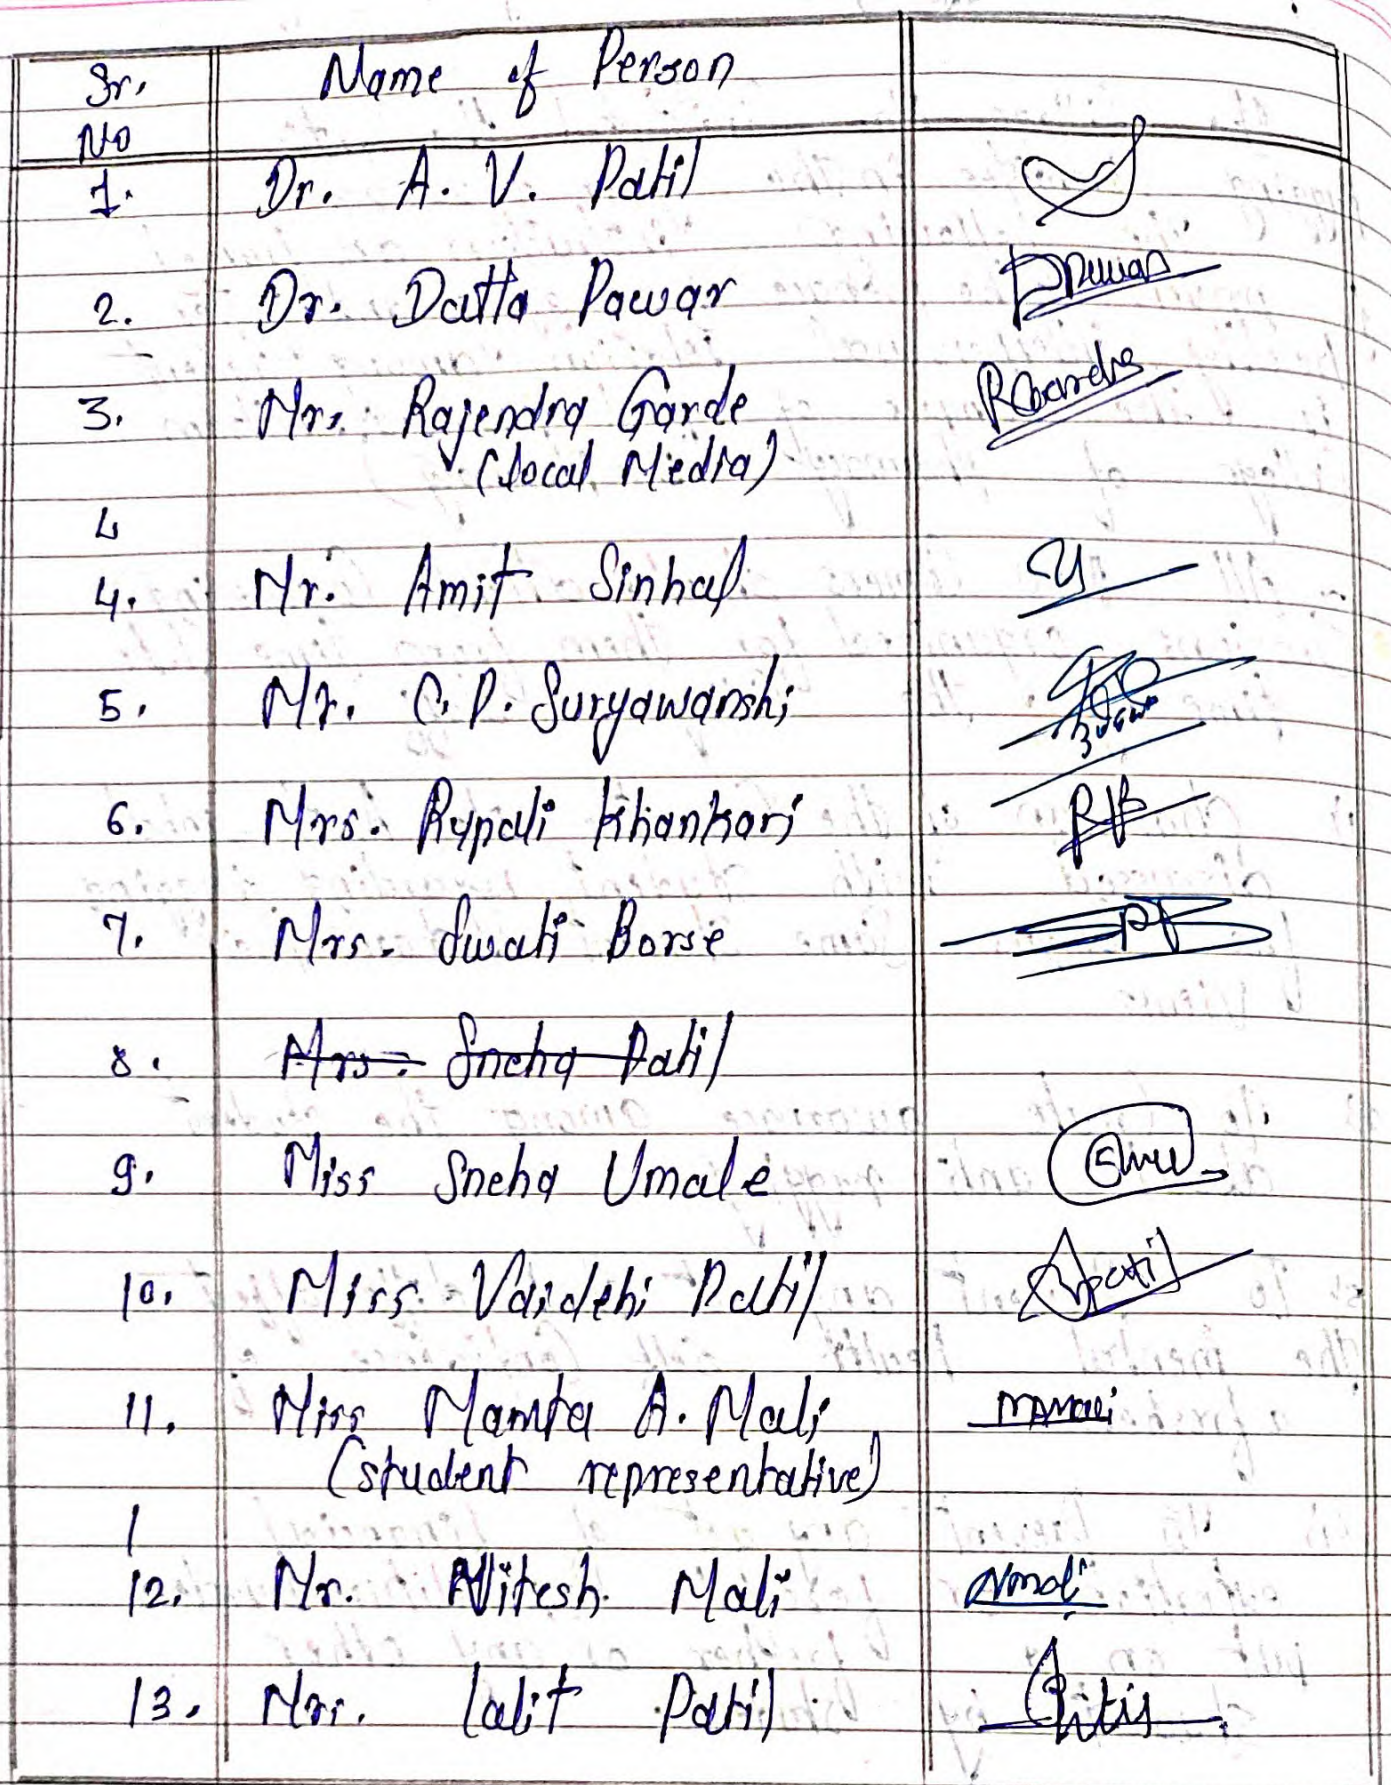 Sr. No Name of Person
1. Dr. A. V. Patil
2. Dr. Datta Pawar
3. Mr. Rajendra Garde
(local Media)
4
4. Mr. Amit Sinhal
5. Mr. C. D. Suryawanshi
6. Mrs. Rupali Khankari
7. Mrs. Swati Borse
8. Mrs. Sneha Patil
9. Miss Sneha Umale
10. Miss Vaidehi Patil
11. Miss Mamta A. Mali
(student representative)
12. Mr. Nitesh Mali
13. Mr. Lalit Patil